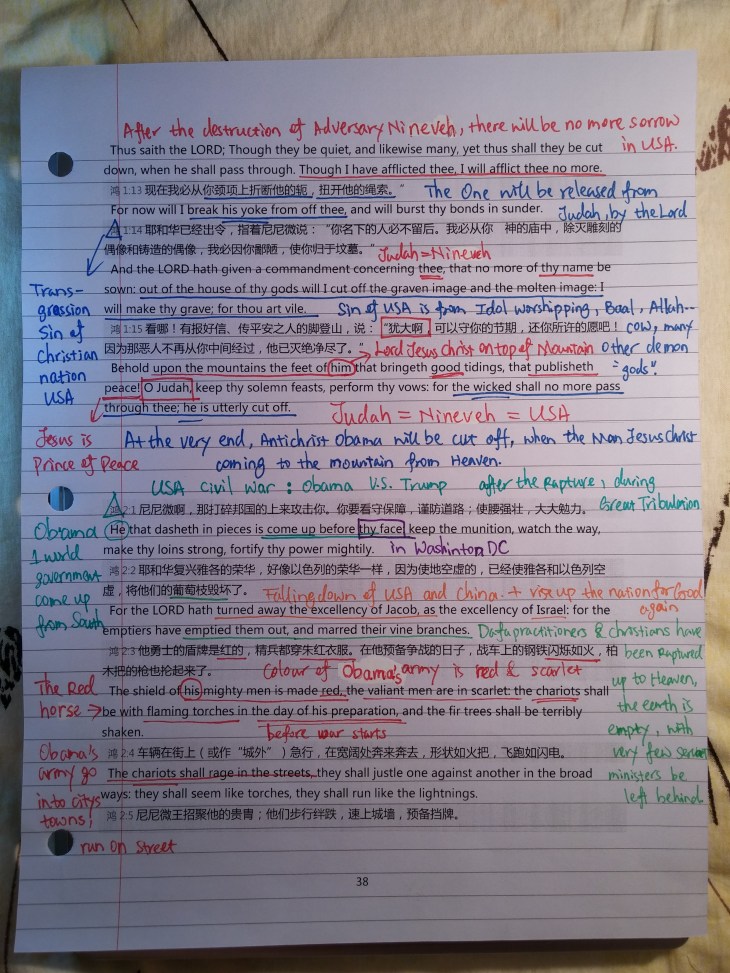 After the destruction of Adversary Nineveh, there will be no more sorrow
in USA.
Thus saith the LORD; Though they be quiet, and likewise many, yet thus shall they be cut
down, when he shall pass through. Though I have afflicted thee, I will afflict thee no more.
鸿 1:13 现在我必从你颈项上折断他的轭，扭开他的绳索。”
The One will be released from
For now will I break his yoke from off thee, and will burst thy bonds in sunder.
Judah, by the Lord
鸿 1:14 耶和华已经出令，指着尼尼微说：“你名下的人必不留后。我必从你 神的庙中，除灭雕刻的
偶像和铸造的偶像，我必因你鄙陋，使你归于坟墓。”
Judah=Nineveh
And the LORD hath given a commandment concerning thee, that no more of thy name be
sown: out of the house of thy gods will I cut off the graven image and the molten image: I
will make thy grave; for thou art vile.
Sin of USA is from Idol worshipping, Baal, Allah..
cow, many
other demon
"gods".
Trans-
gression
Sin of
Christian
nation
USA
鸿 1:15 看哪！有报好信、传平安之人的脚登山，说：“犹大啊，可以守你的节期，还你所许的愿吧！
因为那恶人不再从你中间经过，他已灭绝净尽了。”
Lord Jesus Christ on top of Mountain
Behold upon the mountains the feet of him that bringeth good tidings, that publisheth
peace! O Judah, keep thy solemn feasts, perform thy vows: for the wicked shall no more pass
through thee; he is utterly cut off.
Judah = Nineveh = USA
Jesus is
Prince of Peace
At the very end, Antichrist Obama will be cut off, when the Man Jesus Christ
coming to the mountain from Heaven.
USA civil war : Obama V.S. Trump after the Rapture, during
Great Tribulation
鸿 2:1 尼尼微啊，那打碎邦国的上来攻击你。你要看守保障，谨防道路；使腰强壮，大大勉力。
He that dasheth in pieces is come up before thy face: keep the munition, watch the way,
make thy loins strong, fortify thy power mightily.
in Washinton, DC
Obama
1 world
government
come up
from South
鸿 2:2 耶和华复兴雅各的荣华，好像以色列的荣华一样，因为使地空虚的，已经使雅各和以色列空
虚，将他们的葡萄枝毁坏了。
Falling down of USA and China. + rise up the nation for Good
again
For the LORD hath turned away the excellency of Jacob, as the excellency of Israel: for the
emptiers have emptied them out, and marred their vine branches.
Dafa practitioners & christians have
been Raptured
up to Heaven,
the earth is
empty, with
very few
ministers be
left behind
鸿 2:3 他勇士的盾牌是红的，精兵都穿朱红衣服。在他预备争战的日子，战车上的钢铁闪烁如火，柏
木把的枪也抡起来了。
Colour of Obama's army is red & scarlet
The shield of his mighty men is made red, the valiant men are in scarlet: the chariots shall
be with flaming torches in the day of his preparation, and the fir trees shall be terribly
shaken.
before war starts
The Red
horse →
鸿 2:4 车辆在街上（或作“城外”）急行，在宽阔处奔来奔去，形状如火把，飞跑如闪电。
The chariots shall rage in the streets, they shall justle one against another in the broad
ways: they shall seem like torches, they shall run like the lightnings.
Obama's
army go
into citys
towns,
run on street
鸿 2:5 尼尼微王招聚他的贵胄；他们步行绊跌，速上城墙，预备挡牌。
38